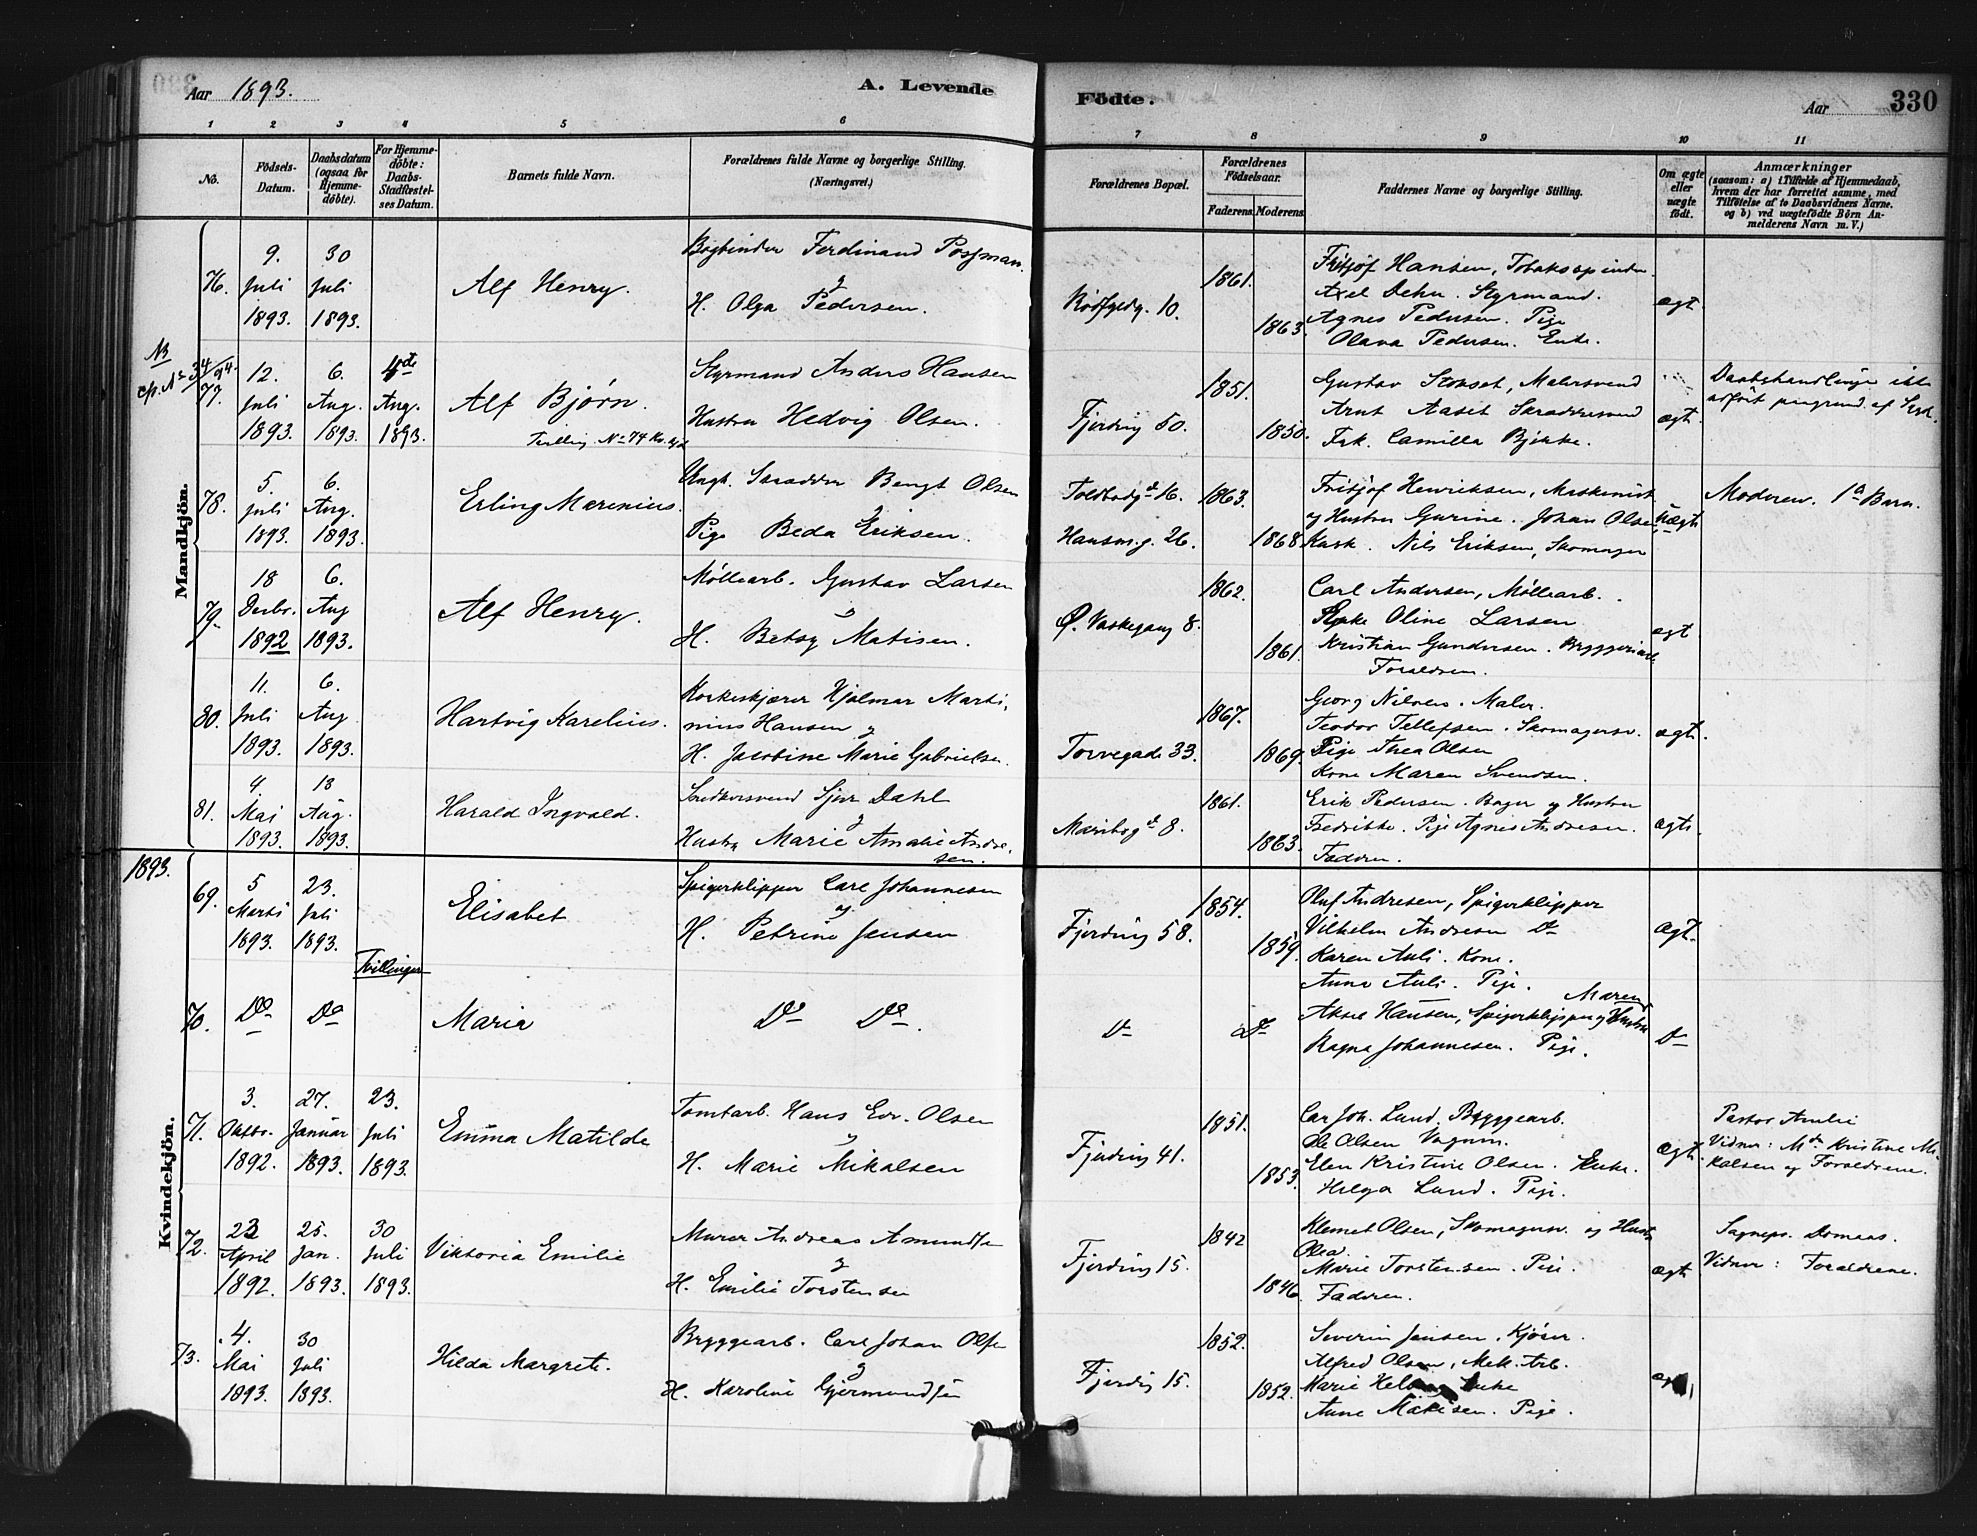 Aar 1893.
A. Levende
Födte.
Aar
330
1 2 3 4 5 6 7 8 9 10 11
No.
Födsels-Datum.
Daabsdatum (ogsaa for Hjemme-döbte).
For Hjemme-döbte: Daabs-Stadfæstel-ses Datum.
Barnets fulde Navn.
Forældrenes fulde Navne og borgerlige Stilling. (Næringsvei.)
Forældrenes Bopæl.
Forældrenes Födselsaar.
Faderens. Moderens.
Faddernes Navne og borgerlige Stilling.
Om ægte eller uægte födt.
Anmærkninger
(saasom: a) i Tilfælde af Hjemmedaab, hvem der har forrettet samme, med Tilföielse af to Daabsvidners Navne. og b) ved uægtefödte Börn An-melderens Navn m. V.)
Mandkjön.
76. 9. Juli 1893. 30 Juli 1893.
Alf Henry.
Bogbinder Ferdinand Possman.
H. Olga Pedersen.
10.
1861. 1863.
Fritjof Hansen,
Axel Dehn. Styrmand.
Agnes Pedersen. Pige
Olava Pedersen. Enke.
ægt
NB
77. 12. Juli 1893. 6. Aug. 1893. Aug. 1893.
Alf Bjørn.
Tvilling. No 74
Styrmand Anders Hansen
Hustru Hedvig Olsen.
Fjerding 50.
1851. 1850.
Gustav Malersvend
Arnt Aaset Skræddersvend
Frk. Camilla Bjerke.
ægt.
Daabshandlingen
78. 5. Juli 1893. 6. Aug. 1893.
Erling Marenius.
Ungk. Skrædder Bengt Olsen
Pige Beda Eriksen.
Toldbodg 16.
26.
1863. 1868
Fritjof Henriksen, Maskinist
og Hustru Gurine. Johan Olsen
Nils Eriksen, Skomager
uægt
Moderen. 1a Barn.
79. 18 Decbr. 1892 6. Aug 1893.
Alf Henry.
Møllearb. Gustav Larsen
H. Betsy Matisen.
Ø. Vaskegang 8.
1862. 1861.
Carl Andersen, Møllearb.
Oline Larsen
Kristian Gundersen.
Forældren.
ægt
80. 11. Juli 1893. 6. Aug 1893.
Hartvig Karelius.
Korkeskjærer Hjalmar Marti-
nius Hansen og
H. Jacobine Marie Gabrielsen.
Torvegade 33.
1867. 1869.
Georg Nilsen. Maler.
Teodor Tellefsen. Skomagersv.
Pige Thea Olsen
Kone Maren Svendsen.
ægt.
81. 4 Mai 1893. 13 Aug. 1893.
Harald Ingvald.
Dahl
Hustru Marie Amalie Andre-
sen.
Maribog 8.
1861. 1863.
Erik Pedersen. Bager og Hustru
Fredrikke. Pige Agnes Andresen.
Faderen.
ægt.
1893.
Kvindekjön.
69. 5 Marts 1893. 23. Juli 1893.
Elisabet
Spigerklipper Carl Johannesen
og
H. Petrine Jensen
Fjerding 58.
1854. 1859.
Oluf Andresen, Spigerklipper
Vilhelm Andresen Do
Karen Auli. Kone.
Anna Auli. Pige.
ægt.
Tvillinger
70. Do Do
Maria
Do Do.
Do Do
Maren
Aksel Hansen, Spigerklipper og Hustru
Ragna Johannesen. Pige.
Do
71. 3. Oktbr. 1892. 27. Januar 1893. 23. Juli 1893.
Emma Matilde
Tomtarb. Hans Edv. Olsen
H. Marie Mikalsen
Fjerding 41.
1851. 1853.
Carl Joh. Lund. Bryggearb.
Ole Olsen Vognm.
Elen Kristine Olsen. Enke.
Helga Lund. Pige.
ægt.
Pastor
Vidner: Kristine Mi-
kalsen og Forældrene.
72. 23 April 1892. 25. Jan. 1893. 30 Juli 1893.
Viktoria Emilie
Murer Andreas Amundsen
H. Emilie Torstensen
Fjerding 15.
1842 1846.
Klemet Olsen, Skomagersv. og Hustru
Olea.
Marie Torstensen. Pige.
Faderen.
ægt
Sognepr. Domaas.
Vidner: Forældrene.
73. 4. Mai 1893. 30 Juli 1893.
Hilda Margrete.
Bryggearb. Carl Johan Olsen
H. Karoline Gjermundsen
Fjerding 15.
1852. 1852.
Severin Jensen. Kjører.
Alfred Olsen, Mek. Arb.
Marie
Anne Matisen. Pige.